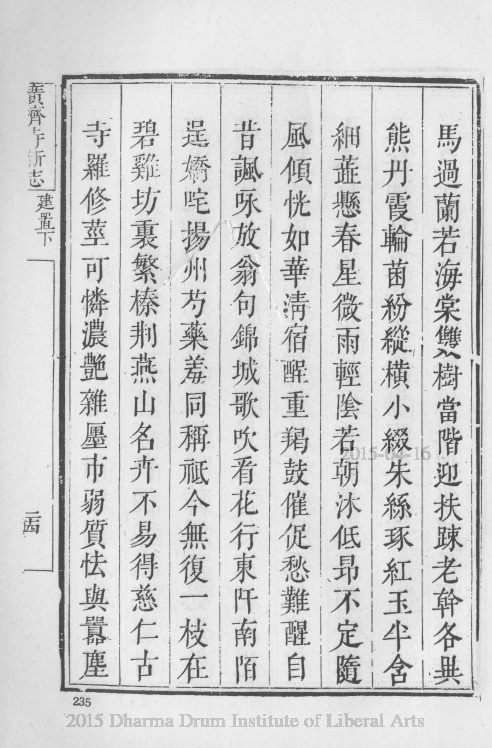 馬過蘭若海棠雙樹當階迎扶踈老幹各異
熊丹霞輪菌紛縱橫小綴朱絲琢紅玉半含
細蘂懸春星微雨輕陰若朝沐低昂不定隨
風傾恍如華淸宿酲重羯鼓催促愁難醒自
昔諷咏放翁句錦城歌吹看花行東阡南陌
逞嬌咤揚州芍藥羞同稱祗今無復一枝在
碧雞坊裏繁榛荆燕山名卉不易得慈仁古
寺羅修莖可憐濃艷雜墨市弱質怯與囂塵
廣濟寺新志
建置下
二四
235
2015-04-16
2015 Dharma Drum Institute of Liberal Arts